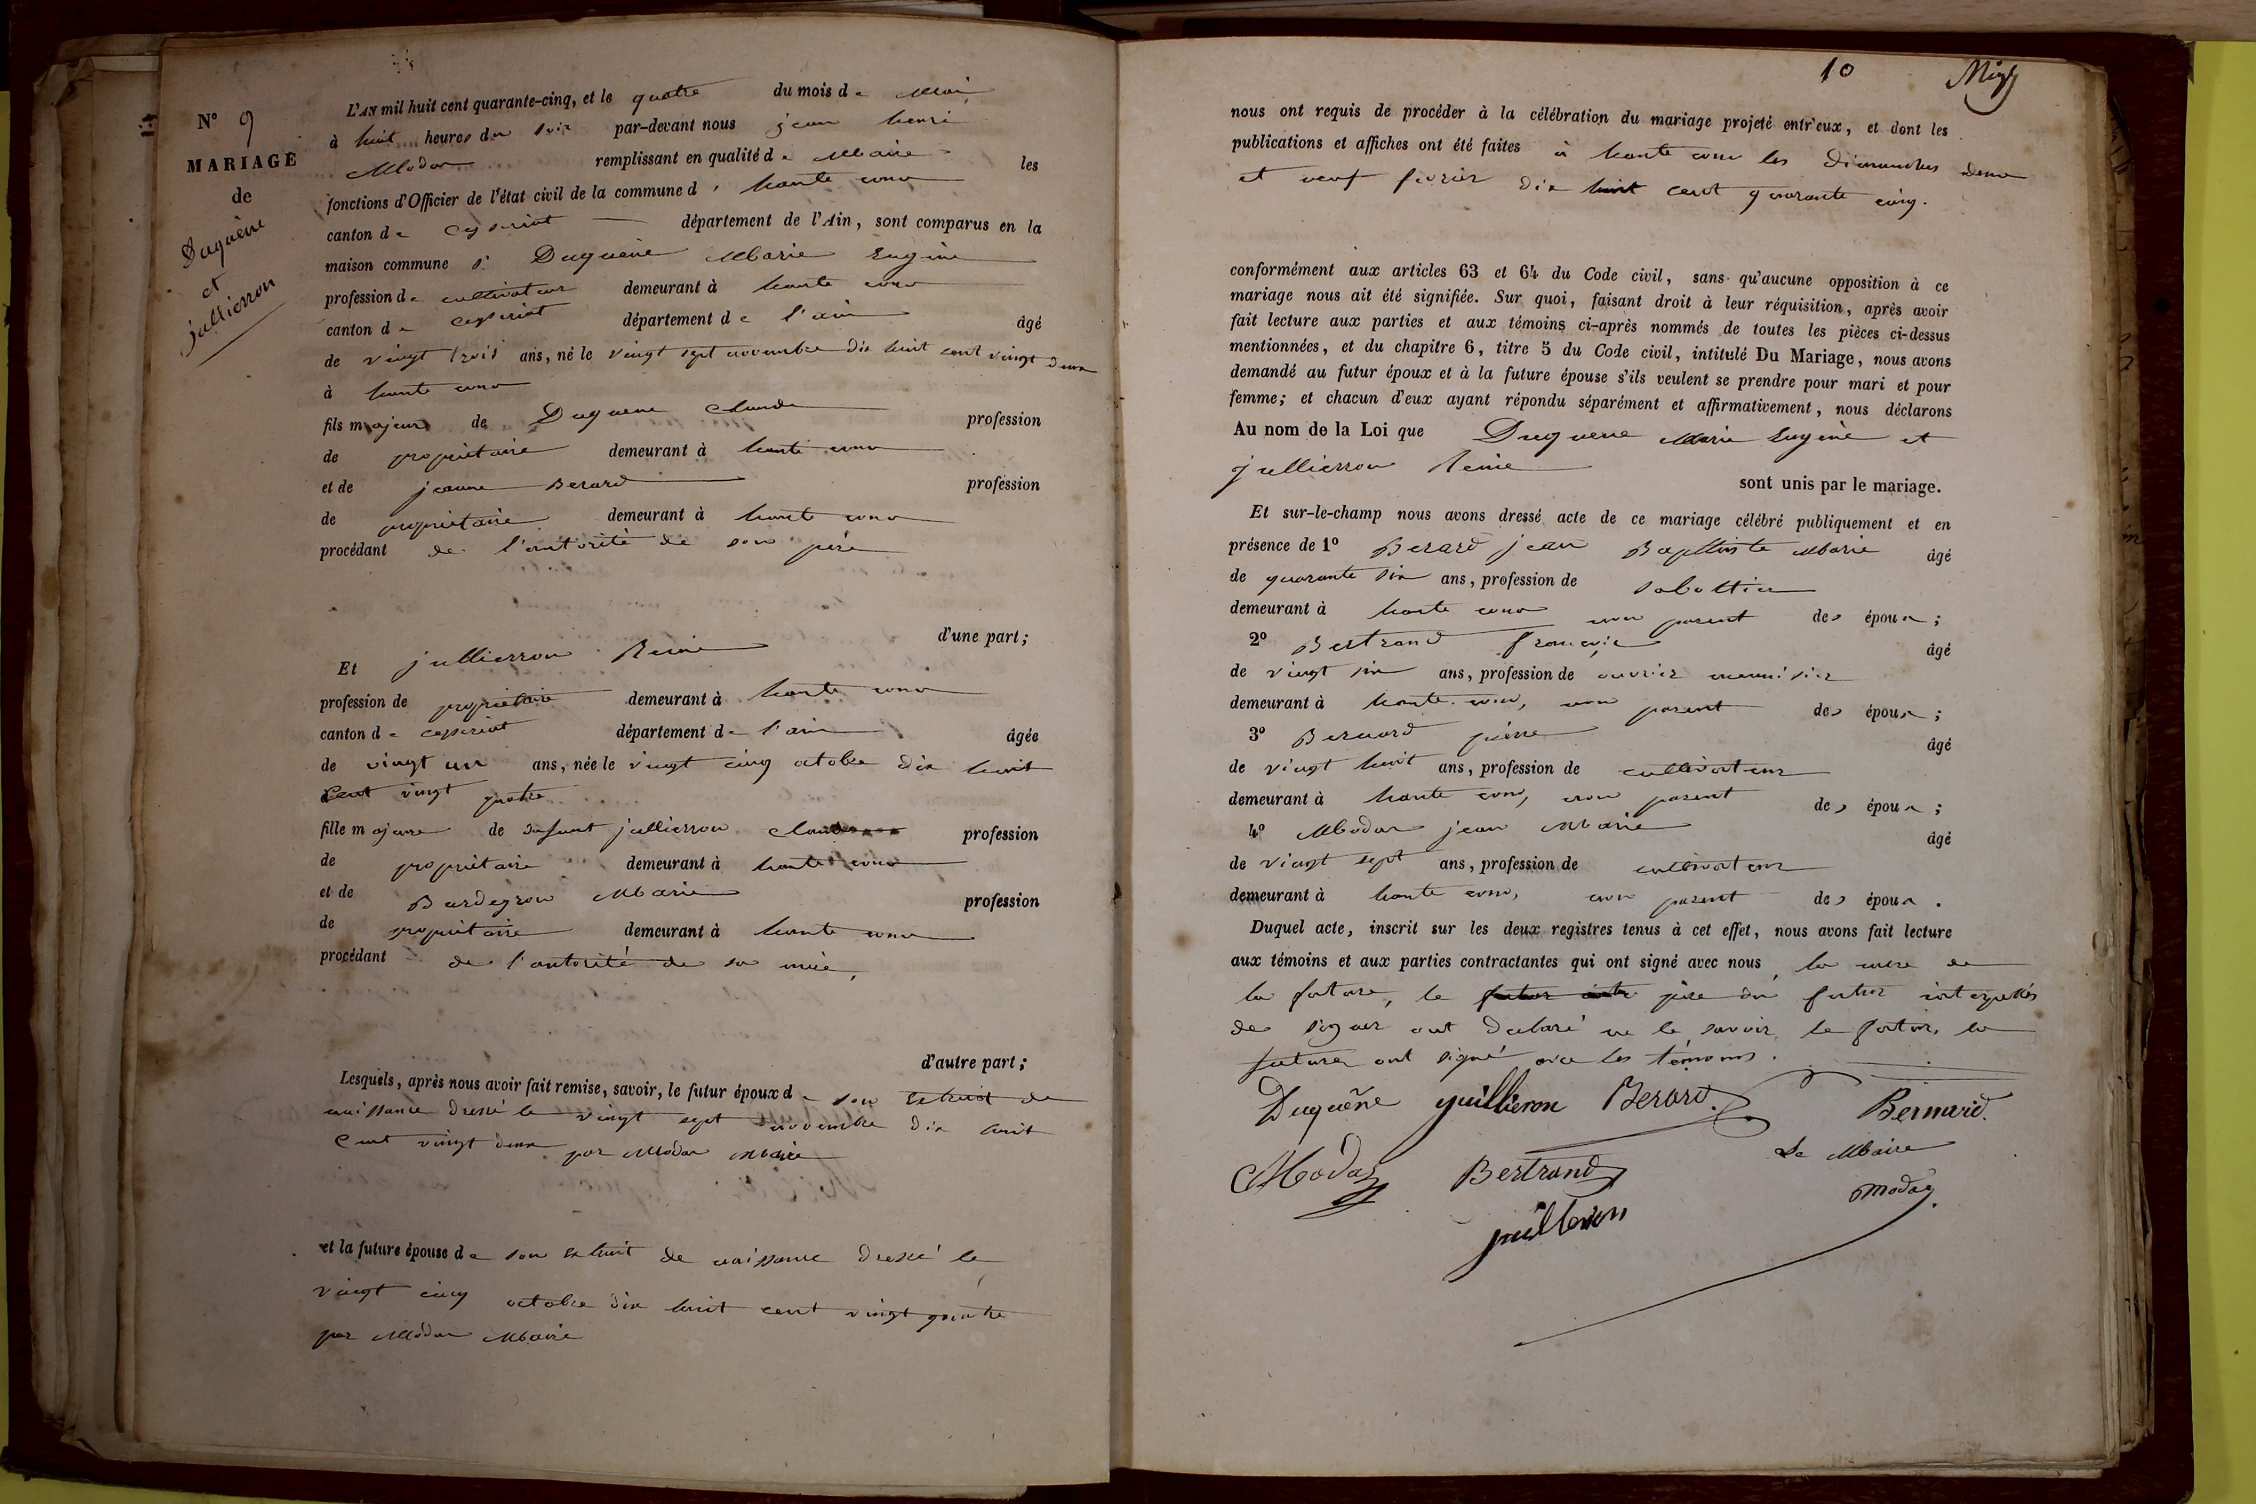 N° 9
MARIAGE
de
Duquêne
et
jullierron
L'AN mil huit cent quarante-cinq, et le quatre du mois de Mai
à huit heures du soir par-devant nous jean henri
Modas remplissant en qualité de Maire les
fonctions d'Officier de l'état civil de la commune d' haute cour
canton de ceyseriat département de l'Ain, sont comparus en la
maison commune Sr Duquène Marie Eugène
profession de cultivateur demeurant à haute cour
canton de ceyseriat département de l'ain âgé
de vingt trois ans, né le vingt sept novembre dix huit cent vingt deux
à haute cour
fils majeur de Duquene Claude profession
de propriétaire demeurant à haute cour
et de jeanne Berard profession
de propriétaire demeurant à haute cour
procédant de l'autorité de son père
d'une part;
Et jullierron Reine
profession de propriétaire demeurant à haute cour
canton de ceyseriat département de l'ain âgée
de vingt un ans, née le vingt cinq octobre dix huit
cent vingt quatre
fille majeure de defunt jullierron Claude profession
de propriétaire demeurant à haute cour
et de Burdeyron Marie profession
de propriétaire demeurant à haute cour
procédant de l'autorité de sa mère,
d'autre part;
Lesquels, après nous avoir fait remise, savoir, le futur époux de son Extrait de
naissance dressé le vingt sept novembre dix huit
Cent vingt deux par Modas Maire
et la future épouse de son extrait de naissance dressé le
vingt cinq octobre dix huit cent vingt quatre
par Modas Maire
10
nous ont requis de procéder à la célébration du mariage projeté entr'eux, et dont les
publications et affiches ont été faites à haute cour les dimanches deux
et neuf fevrier dix huit cent quarante cinq.
conformément aux articles 63 et 64 du Code civil, sans qu'aucune opposition à ce
mariage nous ait été signifiée. Sur quoi, faisant droit à leur réquisition, après avoir
fait lecture aux parties et aux témoins ci-après nommés de toutes les pièces ci-dessus
mentionnées, et du chapitre 6, titre 5 du Code civil, intitulé Du Mariage, nous avons
demandé au futur époux et à la future épouse s'ils veulent se prendre pour mari et pour
femme; et chacun d'eux ayant répondu séparément et affirmativement, nous déclarons
Au nom de la Loi que Duquene Marie Eugène et
jullierron Reine
sont unis par le mariage.
Et sur-le-champ nous avons dressé acte de ce mariage célébré publiquement et en
présence de 1° Berard jean Baptiste Marie âgé
de quarante six ans, profession de sabottier
demeurant à haute cour non parent des époux;
2° Bertrand françois âgé
de vingt six ans, profession de ouvrier menuisier
demeurant à haute cour, non parent des époux;
3° Bernard pierre âgé
de vingt huit ans, profession de cultivateur
demeurant à haute cour, non parent des époux;
4° Modas jean Marie âgé
de vingt sept ans, profession de cultivateur
demeurant à haute cour, non parent des époux.
Duquel acte, inscrit sur les deux registres tenus à cet effet, nous avons fait lecture
aux témoins et aux parties contractantes qui ont signé avec nous, la mere de
la future, le père du futur interpellés
de signer ont declaré ne le savoir le futur, la
future ont signé avec les témoins.
Duquêne guillieron Berard. Bernard.
Modas Bertrand Le Maire
Modas.
juillieron